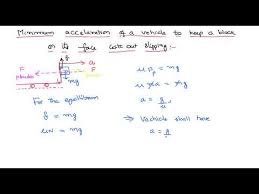 Minimum acceleration of a vehicle to keep a block
on its face without slipping :-
f
a
F
mg
For the equilibrium
f = mg
μN = mg
mg
a = g/μ
⇒ Vechicle shall have
a = g/μ